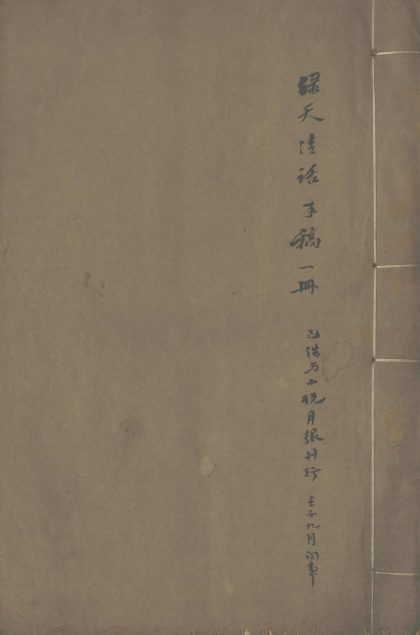 綠天清話手稿一冊
已借与小説月報刊行 壬子九月